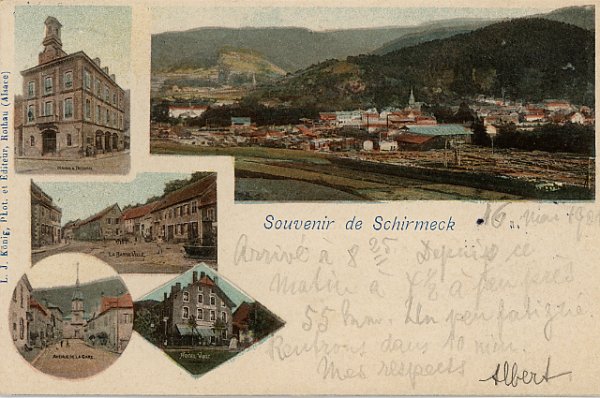 L. J. König, Phot. et Editeur, Rothau (Alsace)
LA BASSE-VILLE
AVENUE DE LA GARE
HOTEL VOGT
Souvenir de Schirmeck
16 Mai
Arrivé à 8 25 Depuis ce
Matin à 4½ à peu près
55 km. Un peu fatigué.
Rentrons dans 10 min.
Mes respects
Albert